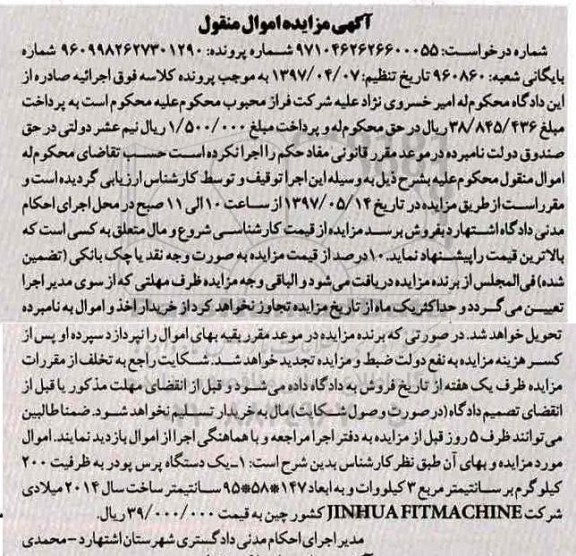 آگهی مزایده اموال منقول
شماره درخواست: ۹۷۱۰۴۶۲۶۲۶۶۰۰۰۵۵ شماره پرونده: ۹۶۰۹۹۸۲۶۲۷۳۰۱۲۹۰ شماره
بایگانی شعبه: ۹۶۰۸۶۰ تاریخ تنظیم: ۱۳۹۷/۰۴/۰۷ به موجب پرونده کلاسه فوق اجرائیه صادره از
این دادگاه محکوم‌له امیر خسروی نژاد علیه شرکت فراز محبوب محکوم‌علیه محکوم است به پرداخت
مبلغ ۳۸/۸۴۵/۴۳۶ ریال در حق محکوم‌له و پرداخت مبلغ ۱/۵۰۰/۰۰۰ ریال نیم عشر دولتی در حق
صندوق دولت نامبرده در موعد مقرر قانونی مفاد حکم را اجرا نکرده است حسب تقاضای محکوم‌له
اموال منقول محکوم‌علیه بشرح ذیل به وسیله این اجرا توقیف و توسط کارشناس ارزیابی گردیده است و
مقرر است از طریق مزایده در تاریخ ۱۳۹۷/۰۵/۱۴ از ساعت ۱۰ الی ۱۱ صبح در محل اجرای احکام
مدنی دادگاه اشتهارد بفروش برسد مزایده از قیمت کارشناسی شروع و مال متعلق به کسی است که
بالاترین قیمت را پیشنهاد نماید. ۱۰ درصد از قیمت مزایده به صورت وجه نقد یا چک بانکی (تضمین
شده) فی‌المجلس از برنده مزایده دریافت می‌شود و الباقی وجه مزایده ظرف مهلتی که از سوی مدیر اجرا
تعیین می‌گردد و حداکثر یک ماه از تاریخ مزایده تجاوز نخواهد کرد از خریدار اخذ و اموال به نامبرده
تحویل خواهد شد. در صورتی که برنده مزایده در موعد مقرر بقیه بهای اموال را نپردازد سپرده او پس از
کسر هزینه مزایده به نفع دولت ضبط و مزایده تجدید خواهد شد. شکایت راجع به تخلف از مقررات
مزایده ظرف یک هفته از تاریخ فروش به دادگاه داده می‌شود و قبل از انقضای مهلت مذکور یا قبل از
انقضای تصمیم دادگاه (در صورت وصول شکایت) مال به خریدار تسلیم نخواهد شود. ضمنا طالبین
می‌توانند ظرف ۵ روز قبل از مزایده به دفتر اجرا مراجعه و با هماهنگی اجرا از اموال بازدید نمایند. اموال
مورد مزایده و بهای آن طبق نظر کارشناس بدین شرح است: ۱-یک دستگاه پرس پودر به ظرفیت ۲۰۰
کیلوگرم بر سانتیمتر مربع ۳ کیلووات و به ابعاد ۱۴۷*۵۸*۹۵ سانتیمتر ساخت سال ۲۰۱۴ میلادی
شرکت JINHUA FITMACHINE کشور چین به قیمت ۳۹/۰۰۰/۰۰۰ ریال.
مدیر اجرای احکام مدنی دادگستری شهرستان اشتهارد - محمدی